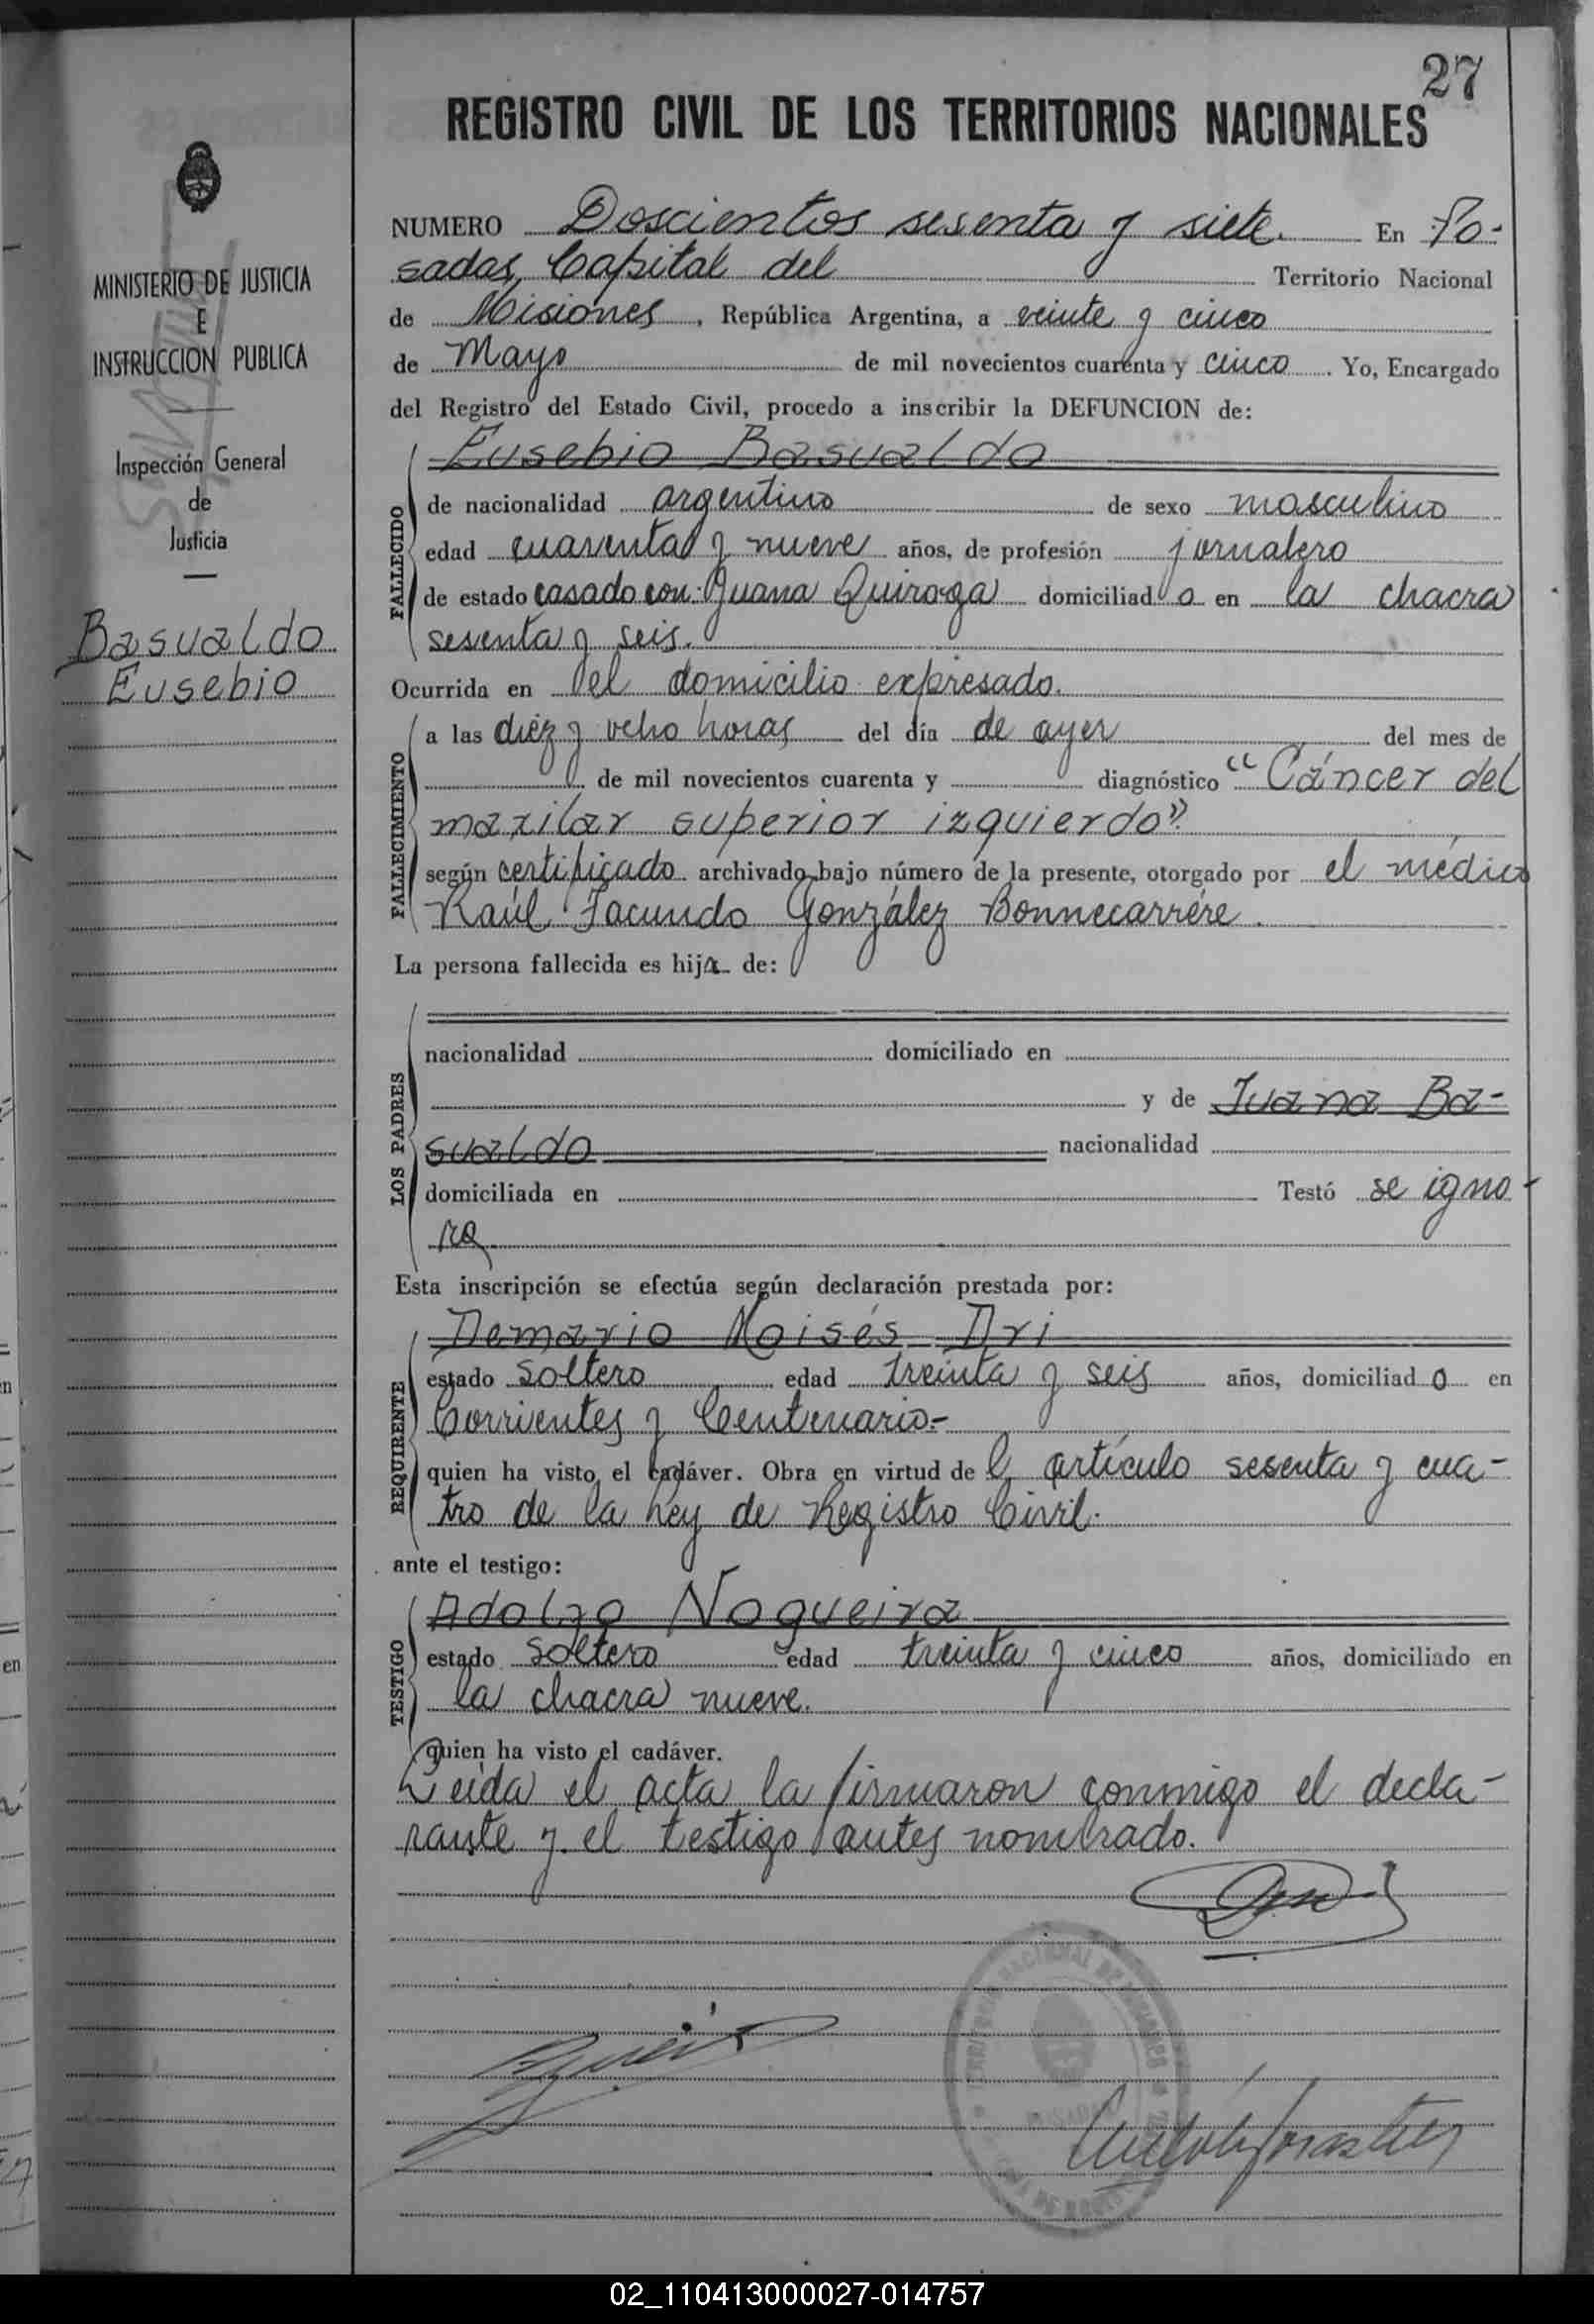 27
REGISTRO CIVIL DE LOS TERRITORIOS NACIONALES
MINISTERIO DE JUSTICIA
E
INSTRUCCION PUBLICA
Inspección General
de
Justicia
Basualdo
Eusebio
NUMERO Doscientos sesenta y siete. En Po-
sadas, Capital del Territorio Nacional
de Misiones, República Argentina, a veinte y cinco
de Mayo de mil novecientos cuarenta y cinco. Yo, Encargado
del Registro del Estado Civil, procedo a inscribir la DEFUNCION de:
FALLECIDO
Eusebio Basualdo
de nacionalidad argentino de sexo masculino
edad cuarenta y nueve años, de profesión jornalero
de estado casado con: Juana Quiroga domiciliado en la chacra
sesenta y seis.
Ocurrida en el domicilio expresado.
FALLECIMIENTO
a las diez y ocho horas del día de ayer del mes de
de mil novecientos cuarenta y diagnóstico "Cáncer del
maxilar superior izquierdo".
según certificado archivado bajo número de la presente, otorgado por el médico
Raúl Facundo González Bonnecarrére.
La persona fallecida es hija de:
LOS PADRES
nacionalidad domiciliado en
y de Juana Ba-
sualdo nacionalidad
domiciliada en Testó se igno-
ra
Esta inscripción se efectúa según declaración prestada por:
REQUIRENTE
Demario Moisés Dri
estado soltero edad treinta y seis años, domiciliado en
Corrientes y Centenario.-
quien ha visto el cadáver. Obra en virtud del artículo sesenta y cua-
tro de la Ley de Registro Civil.
ante el testigo:
TESTIGO
Adolfo Nogueira
estado soltero edad treinta y cinco años, domiciliado en
la chacra nueve.
quien ha visto el cadáver.
Leída el acta la firmaron conmigo el decla-
rante y el testigo antes nombrado.
02_110413000027-014757